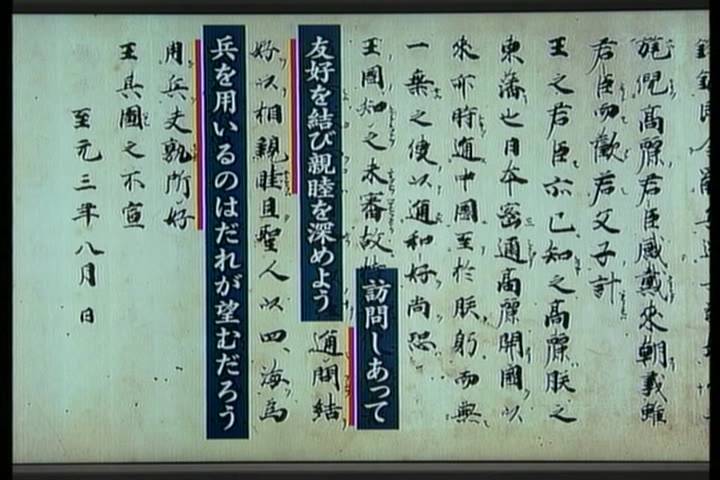 旄倪高麗君臣感戴來朝義雖
君臣而歡若父子計
王之君臣亦已知之高麗朕之
東藩也日本密通高麗開國以
來亦時通中國至於朕躬而無
一乗之使以通和好尚恐
王國知之未審故
訪問しあって
通問結
友好を結び親睦を深めよう
好以相親睦且聖人以四海為
兵を用いるのはだれが望むだろう
用兵夫孰所好
王其圖之不宣
至元三年八月 日